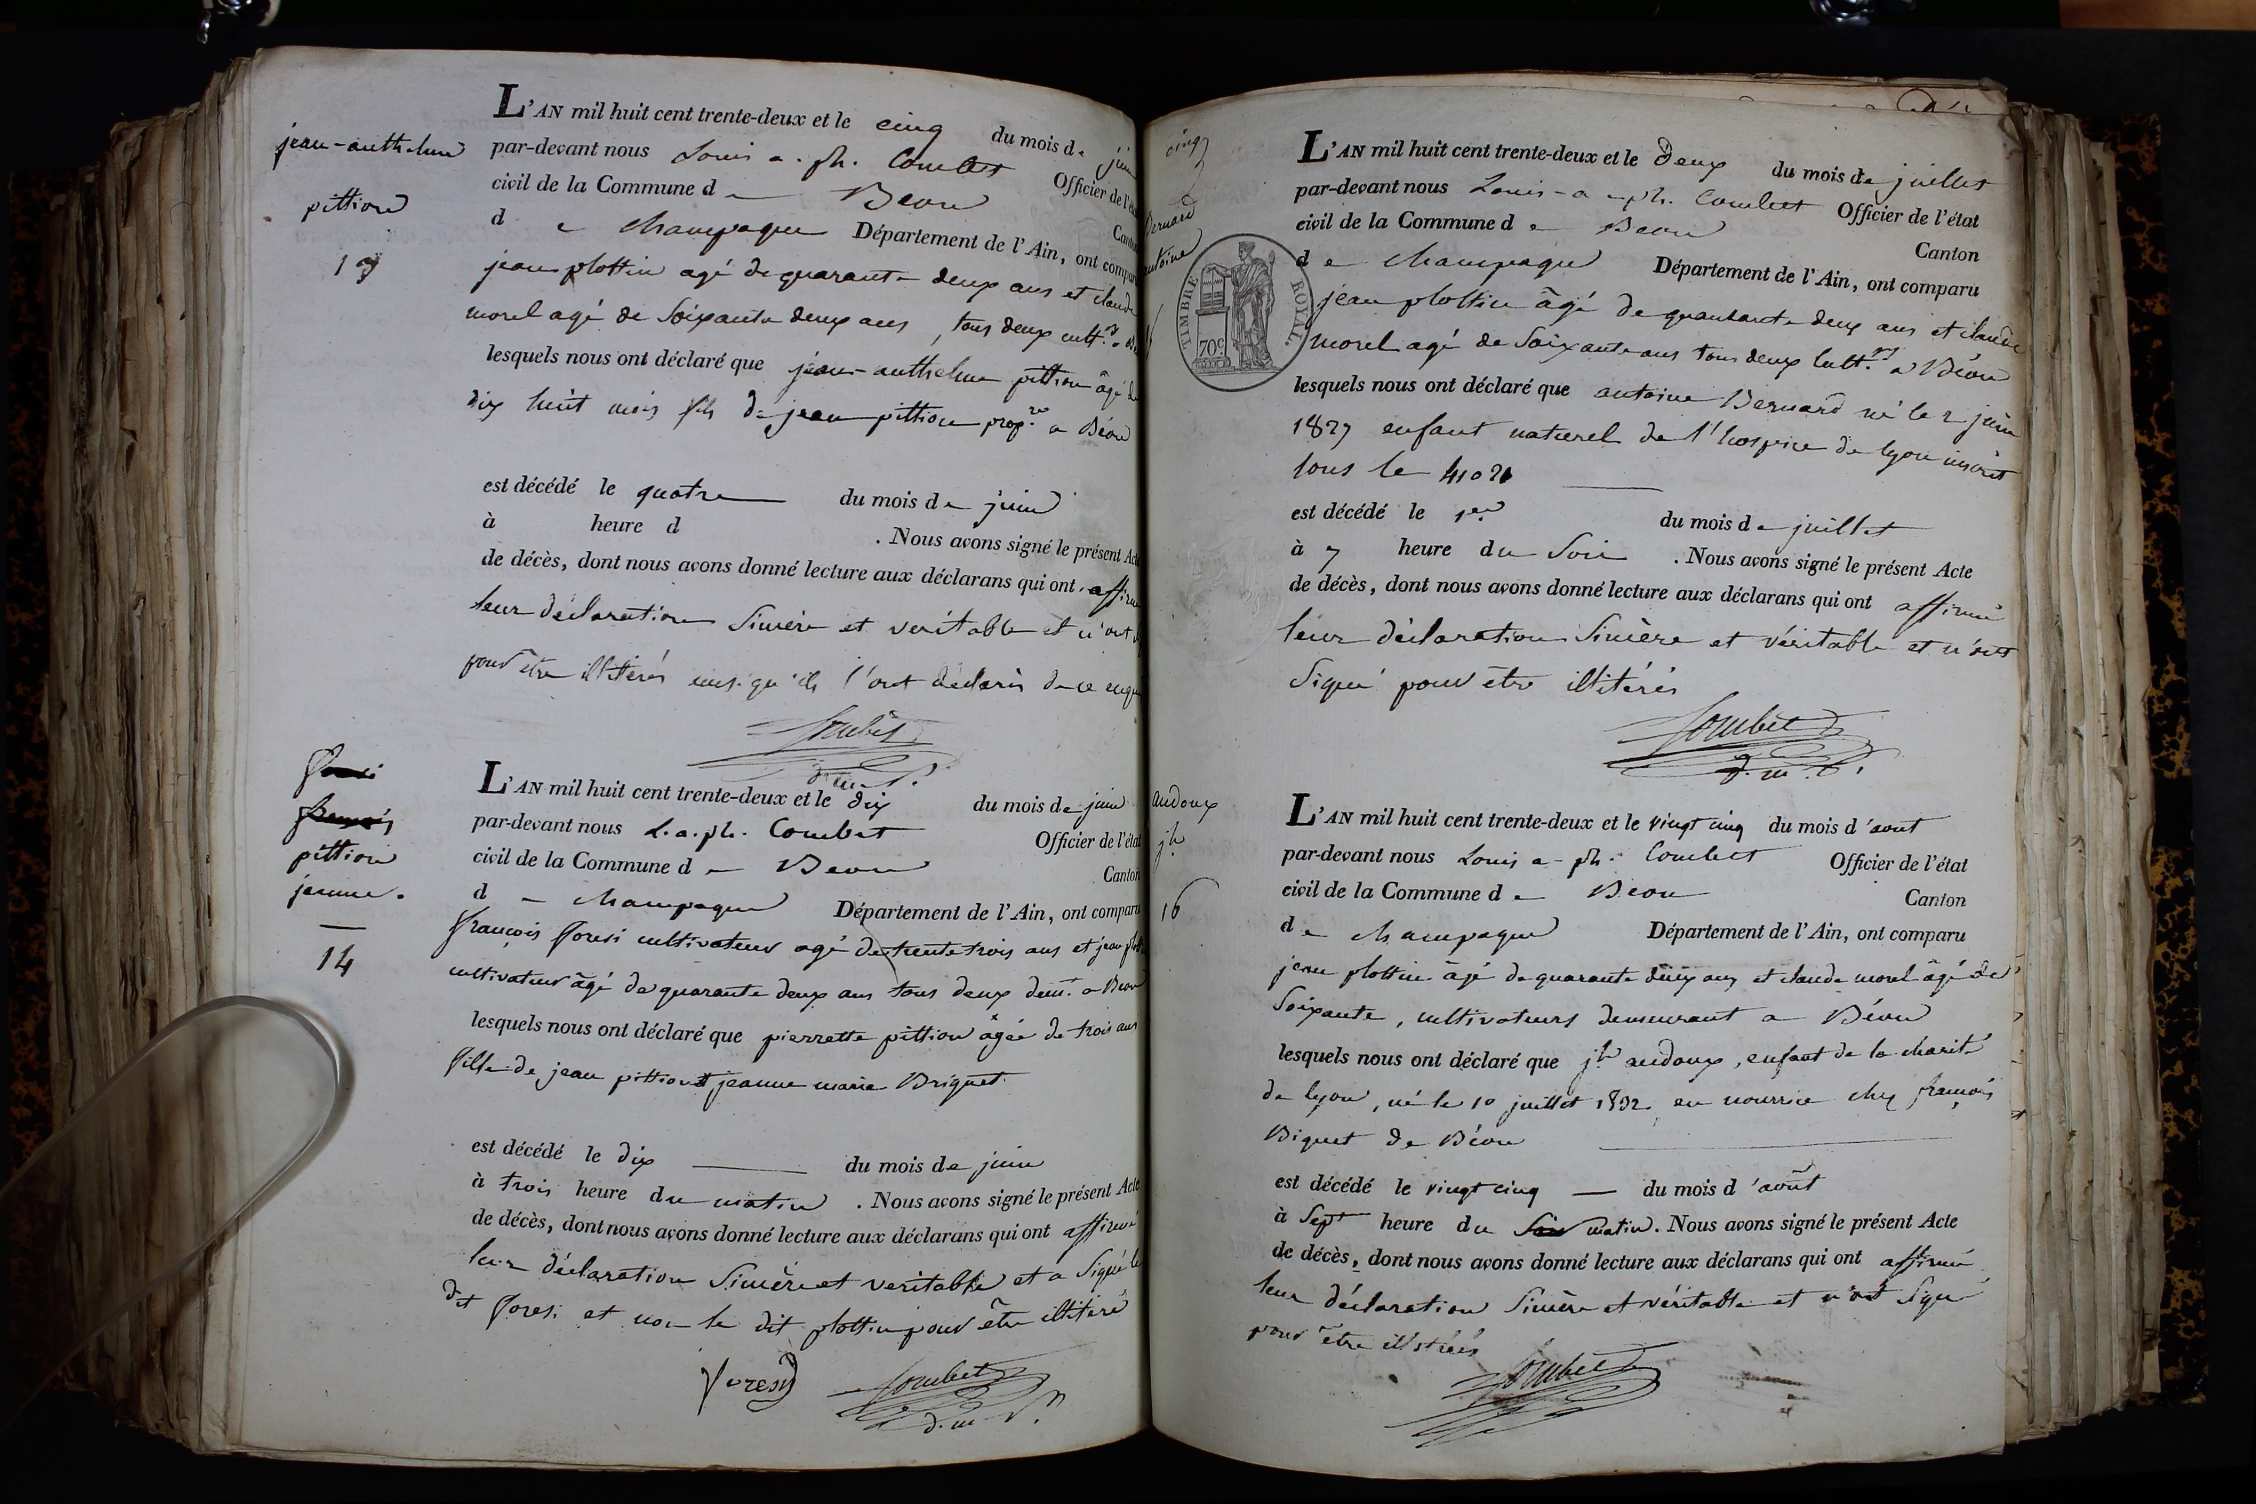 jean-anthelme
pittion
13
L'AN mil huit cent trente-deux et le cinq du mois de juin
par-devant nous Louis a. ph. Combet Officier de l'état
civil de la Commune de Beon Canton
de Champagne Département de l'Ain, ont comparu
jean plottin agé de quarante deux ans et claude
morel agé de Soixante deux ans, tous deux cult.rs a
lesquels nous ont déclaré que jean-anthelme pittion âgé de
dix huit mois fils de jean pittion prop.re a Béon
est décédé le quatre du mois de juin
à heure d . Nous avons signé le présent Acte
de décès, dont nous avons donné lecture aux déclarans qui ont affirmé
leur déclaration Sincère et veritable et n'ont
pour être illitérés ainsi qu'ils l'ont déclaré de ce enquis
Combet
d. m. p.
foresi
françois
pittion
jeanne.
14
L'AN mil huit cent trente-deux et le dix du mois de juin
par-devant nous L. a. ph. Combet Officier de l'état
civil de la Commune de Beon Canton
de Champagne Département de l'Ain, ont comparu
françois foresi cultivateur agé de trente trois ans et jean
cultivateur âgé de quarante deux ans tous deux dem.t a Beon
lesquels nous ont déclaré que pierrette pittion âgée de trois ans
fille de jean pittion et jeanne marie Briquet
est décédé le dix du mois de juin
à trois heure du matin . Nous avons signé le présent Acte
de décès, dont nous avons donné lecture aux déclarans qui ont affirmé
leur déclaration Sincère et veritable et a Signé le
dit foresi et non le dit plottin pour être illitéré
foresi
Combet
d. m. p.
cinq
Bernard
antoine
TIMBRE ROYAL.
70c
L'AN mil huit cent trente-deux et le deux du mois de juillet
par-devant nous Louis-a-ph. Combet Officier de l'état
civil de la Commune de Beon Canton
de Champagne Département de l'Ain, ont comparu
jean plottin âgé de quarante deux ans et claude
morel agé de Soixante ans tous deux cult.rs a Béon
lesquels nous ont déclaré que antoine Bernard né le 2 juin
1827 enfant naturel de l'hospice de lyon inscrit
sous le
est décédé le 1er du mois de juillet
à 7 heure du Soir . Nous avons signé le présent Acte
de décès, dont nous avons donné lecture aux déclarans qui ont affirmé
leur déclaration Sincère et véritable et n'ont
Signé pour être illitérés
Combet
d. m. p.
audoux
jh
16
L'AN mil huit cent trente-deux et le vingt cinq du mois d'aout
par-devant nous Louis a-ph. Combet Officier de l'état
civil de la Commune de Beon Canton
de Champagne Département de l'Ain, ont comparu
jean plottin âgé de quarante deux ans et claude morel âgé de
Soixante, cultivateurs demeurant a Béon
lesquels nous ont déclaré que jh audoux, enfant de la charité
de lyon, né le 10 juillet 1832 en nourrice chez françois
Biquet de Béon
est décédé le vingt cinq du mois d'août
à Sept heure du Soir matin. Nous avons signé le présent Acte
de décès, dont nous avons donné lecture aux déclarans qui ont affirmé
leur déclaration Sincère et véritable et n'ont Signé
pour être illitérés
Combet